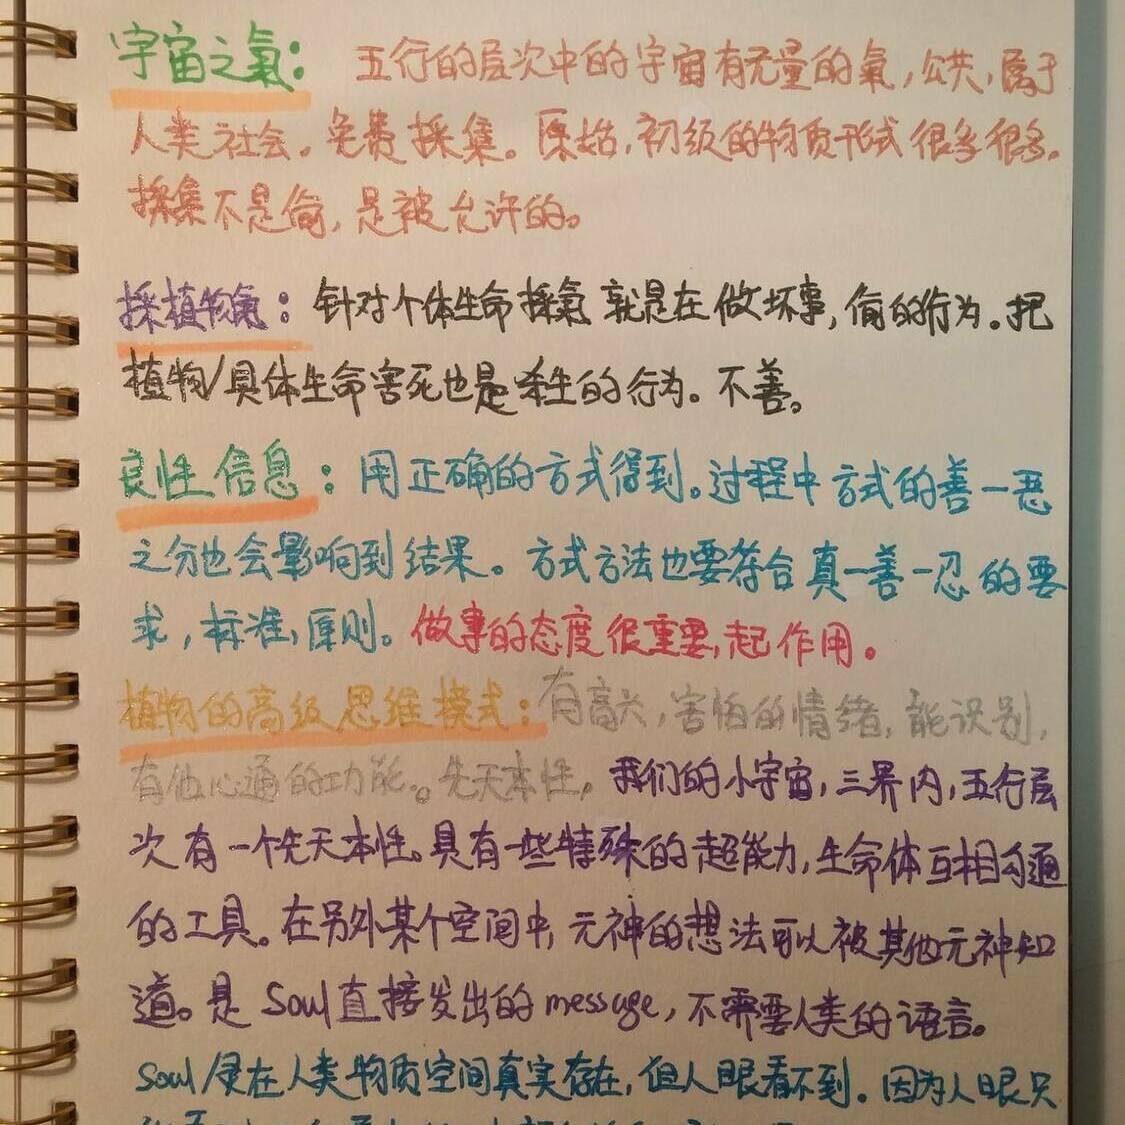 宇宙之氣：五行的层次中的宇宙有无量的氣，公共，属于
人类社会。免费採集。原始，初级的物质形式很多很多。
採集不是偷，是被允许的。
採植物氣：针对个体生命採氣就是在做坏事，偷的行为。把
植物/具体生命害死也是杀生的行为。不善。
良性信息：用正确的方式得到。过程中方式的善一恶
之分也会影响到结果。方式方法也要符合真一善一忍的要
求，标准，原则。做事的态度很重要，起作用。
植物的高级思维模式：有高兴，害怕的情绪，能识别，
有他心通的功能。先天本性。我们的小宇宙，三界内，五行层
次有一个先天本性。具有一些特殊的超能力，生命体互相勾通
的工具。在另外某个空间中，元神的想法可以被其他元神知
道。是 Soul 直接发出的 message，不需要人类的语言。
Soul/灵在人类物质空间真实存在，但人眼看不到。因为人眼只